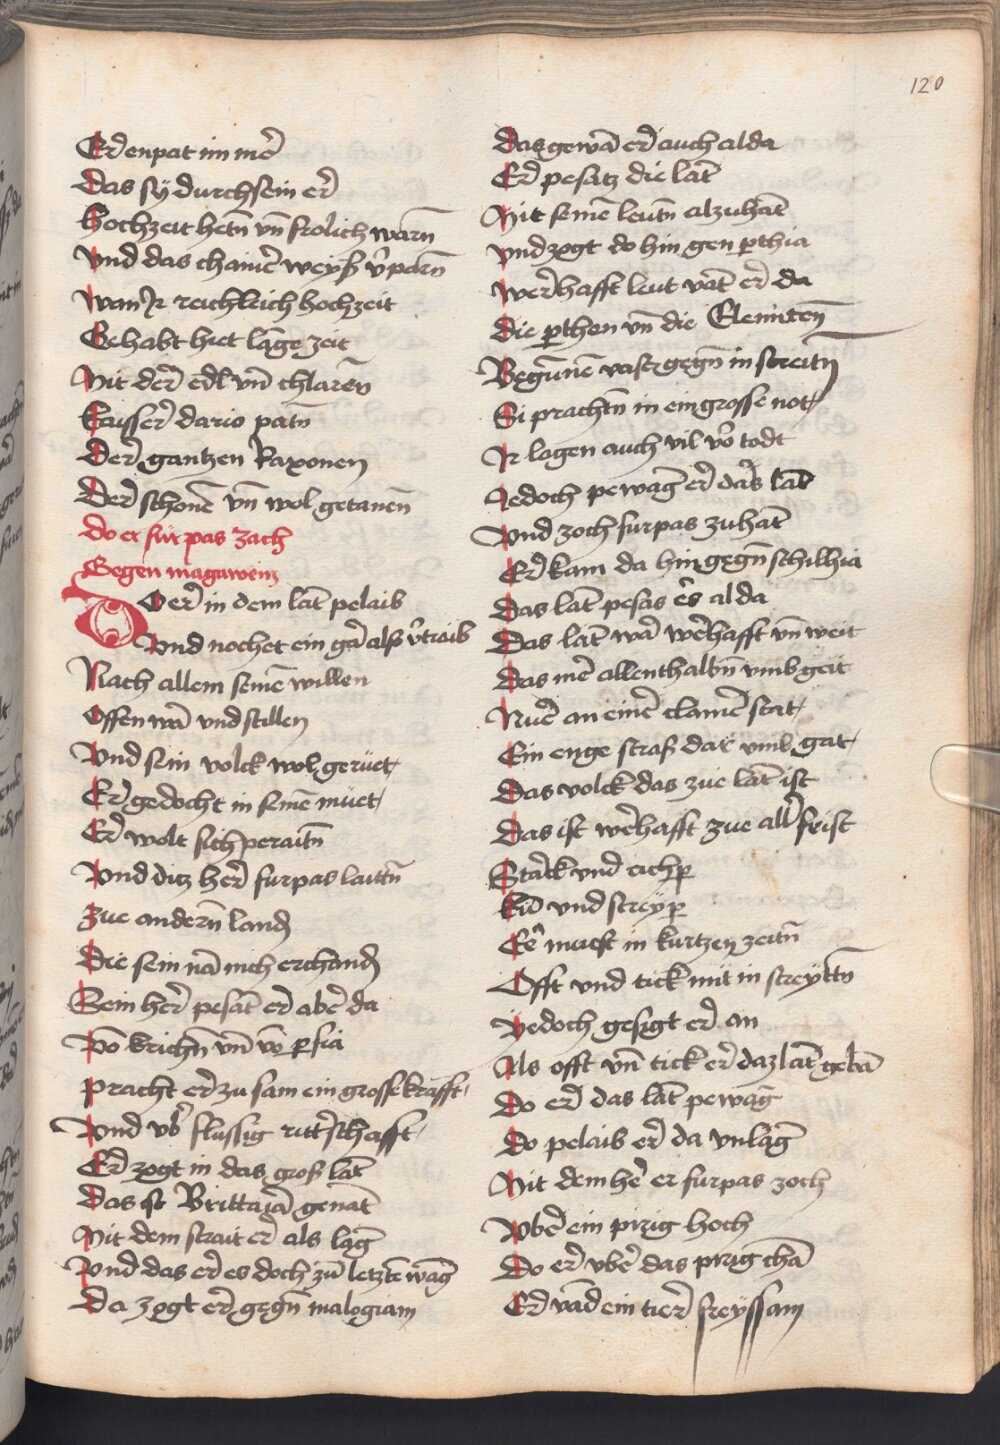 120
Er enpat im mer̄
Das sÿ durch sein er̄
Hochzeit hetn̄ vn̄ frolich warn̄
Vnd das chainer̄ weyß v̓parn̄
Wan Jr reichleich hochzeit
Gehabt hiet lāge zeit
Mit der̄ edl vn̄ chlaren̄
Kaisser̄ dario patn̄
Der̄ gantzen Raxonen
Der̄ schonē vn̄ wol getanen̄
do er für pas zach
Gegen magawein
DO er̄ in dem lāt pelaib
Vnd nochet ein gār̄ alß v̓traib
Nach allem seinē willen
Offenwār̄ vnd stillen
Vnd sein volck wol gerüet
Er̄ gedocht in seinē müet
Er̄ wolt sich peraitn̄
Vnd ditz her̄ furpas laittn̄
Zue andern̄ land̄
Die sein nām ich erchand̄
Sein her̄ pesāt er̄ aber̄ da
Vō krichn̄ vn̄ vō persia
Pracht er̄ zu sam ein grosse krafft
Vnd vb̓ flussig ritt̓schafft
Er̄ zogt in das groß lāt
Das ist Brittajā genāt
Mit dem strait er̄ als lāg
Vnd das er̄ es doch zū letztē wāg
Da zogt er̄ gegn̄ malogiam
Das gewā er̄ auch alda
Er̄ pesatz die lāt
Mit seinē leutn̄ alzuhāt
Vnd zogt do hin gen perthia
Wer̄hafft leut vāt er̄ da
Die perthen vn̄ die Elemiten̄
Begūnē vast gegn̄ in streitn̄
Si prachtn̄ in ein grosse not
Jr lagen auch vil vō todt
Jedoch pewāg er̄ das lāt
Vnd zoch furpas zuhāt
Er̄ kam da hin gegn̄ schilhia
Das lāt pesas er̓ alda
Das lāt wār̄ wer̄hafft vn̄ weit
Das mer̄ allenthalbn̄ vmb geit
Nuer̄ an einer̄ clainer̄ stat
Ein enge straß dar vmb gat
Das volck das zue lāt ist
Das ist wer̄hafft zue all̓ frist
Starck vnd
vnd
Er̓ muest in kurtzen zeitn̄
Offt vnd tick mit in streyttn̄
Yedoch gesigt er̄ an
Als offt vn̄ tick er̄ daz lāt gebā
Do er̄ das lāt pewāg
Do pelaib er̄ da vnlāg
Mit dem her̓ er furpas zoch
Vber̄ ein pirig hoch
Do er̄ vber̄ das pirig chā
Er̄ vād ein tier̄ freyssam